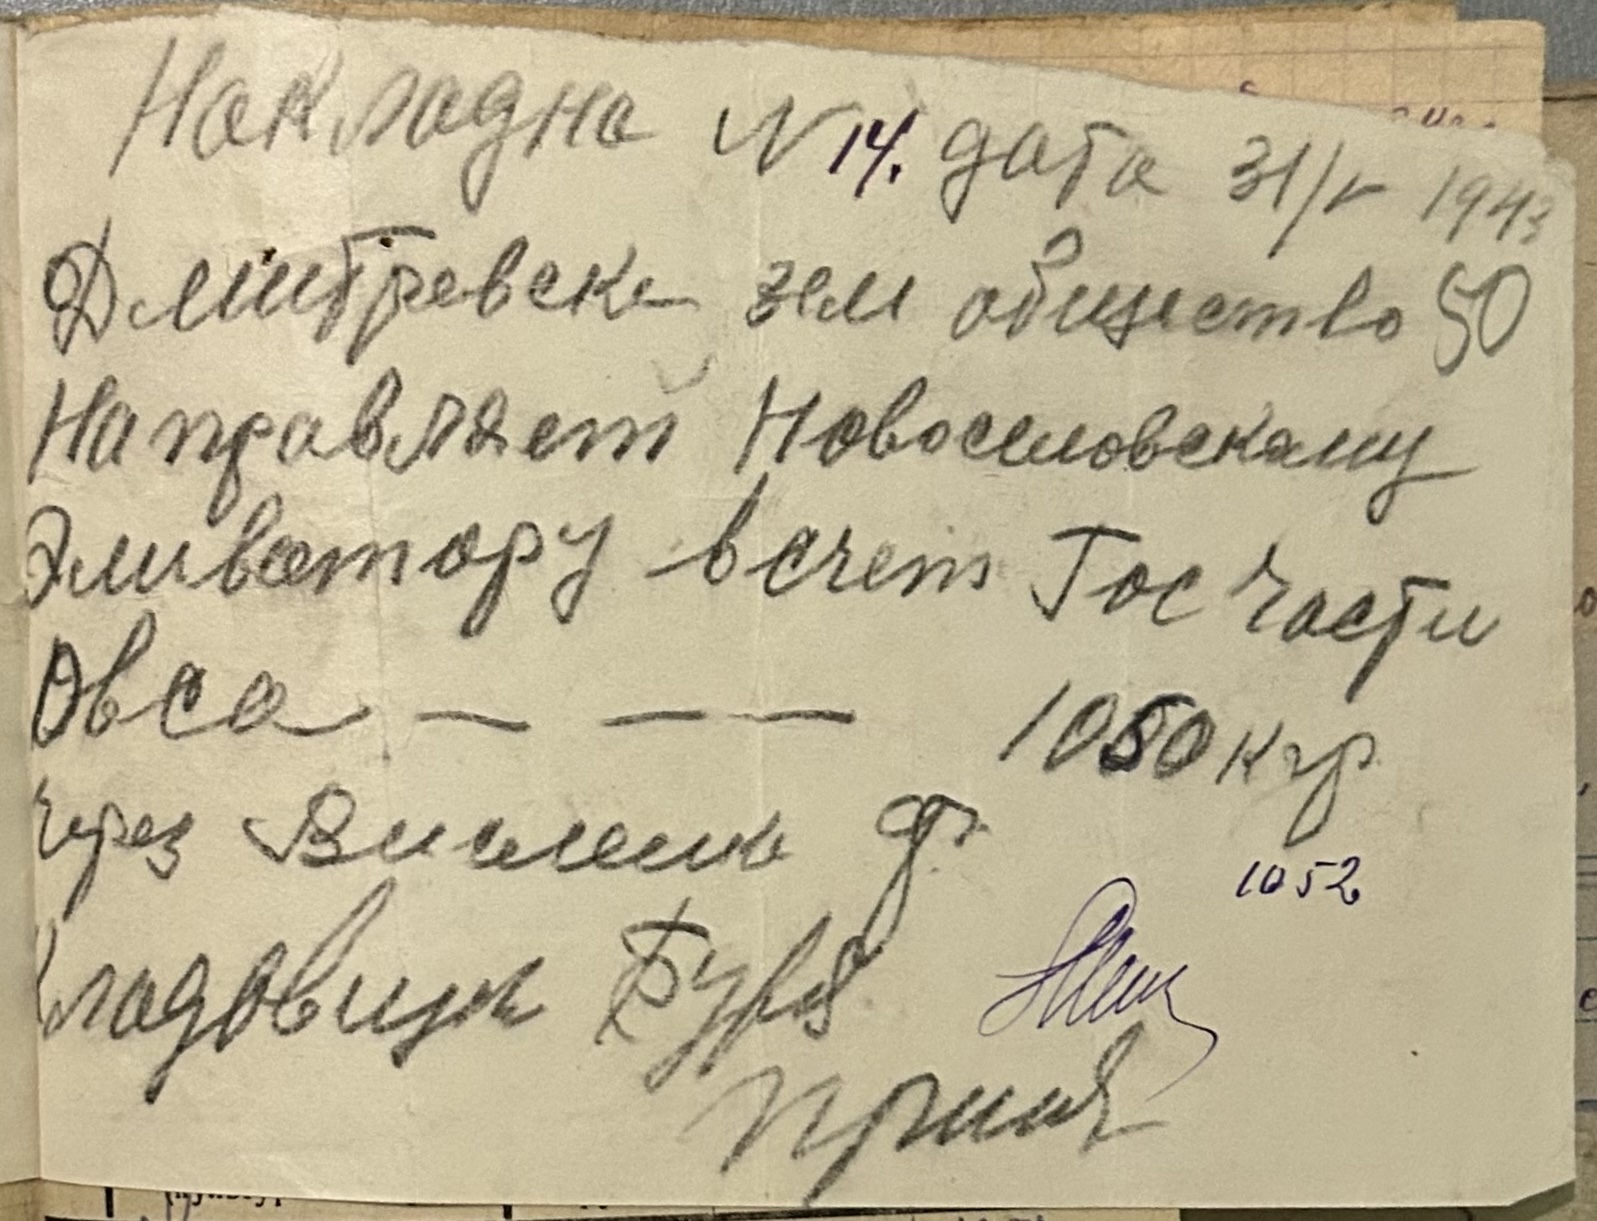 Накладна N 14. дата 31/V 1943
Дмитревске зем общество 50
Направляет Новоселовскому
Эливатору в счет Гос части
Овса — — — 1050 кгр
Через
1052
Кладовщик